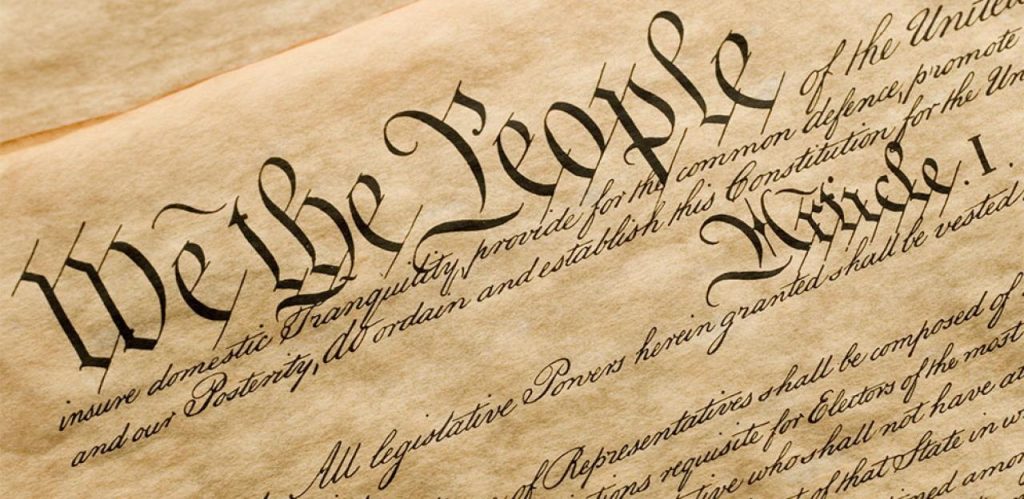 We the People of the United
insure domestic Tranquility, provide for the common defence, promote
and our Posterity, do ordain and establish this Constitution for the Un
Article. I.
All legislative Powers herein granted shall be vested
of Representatives shall be composed of
tions requisite for Electors of the most
who shall not have at
of that State in w
amon